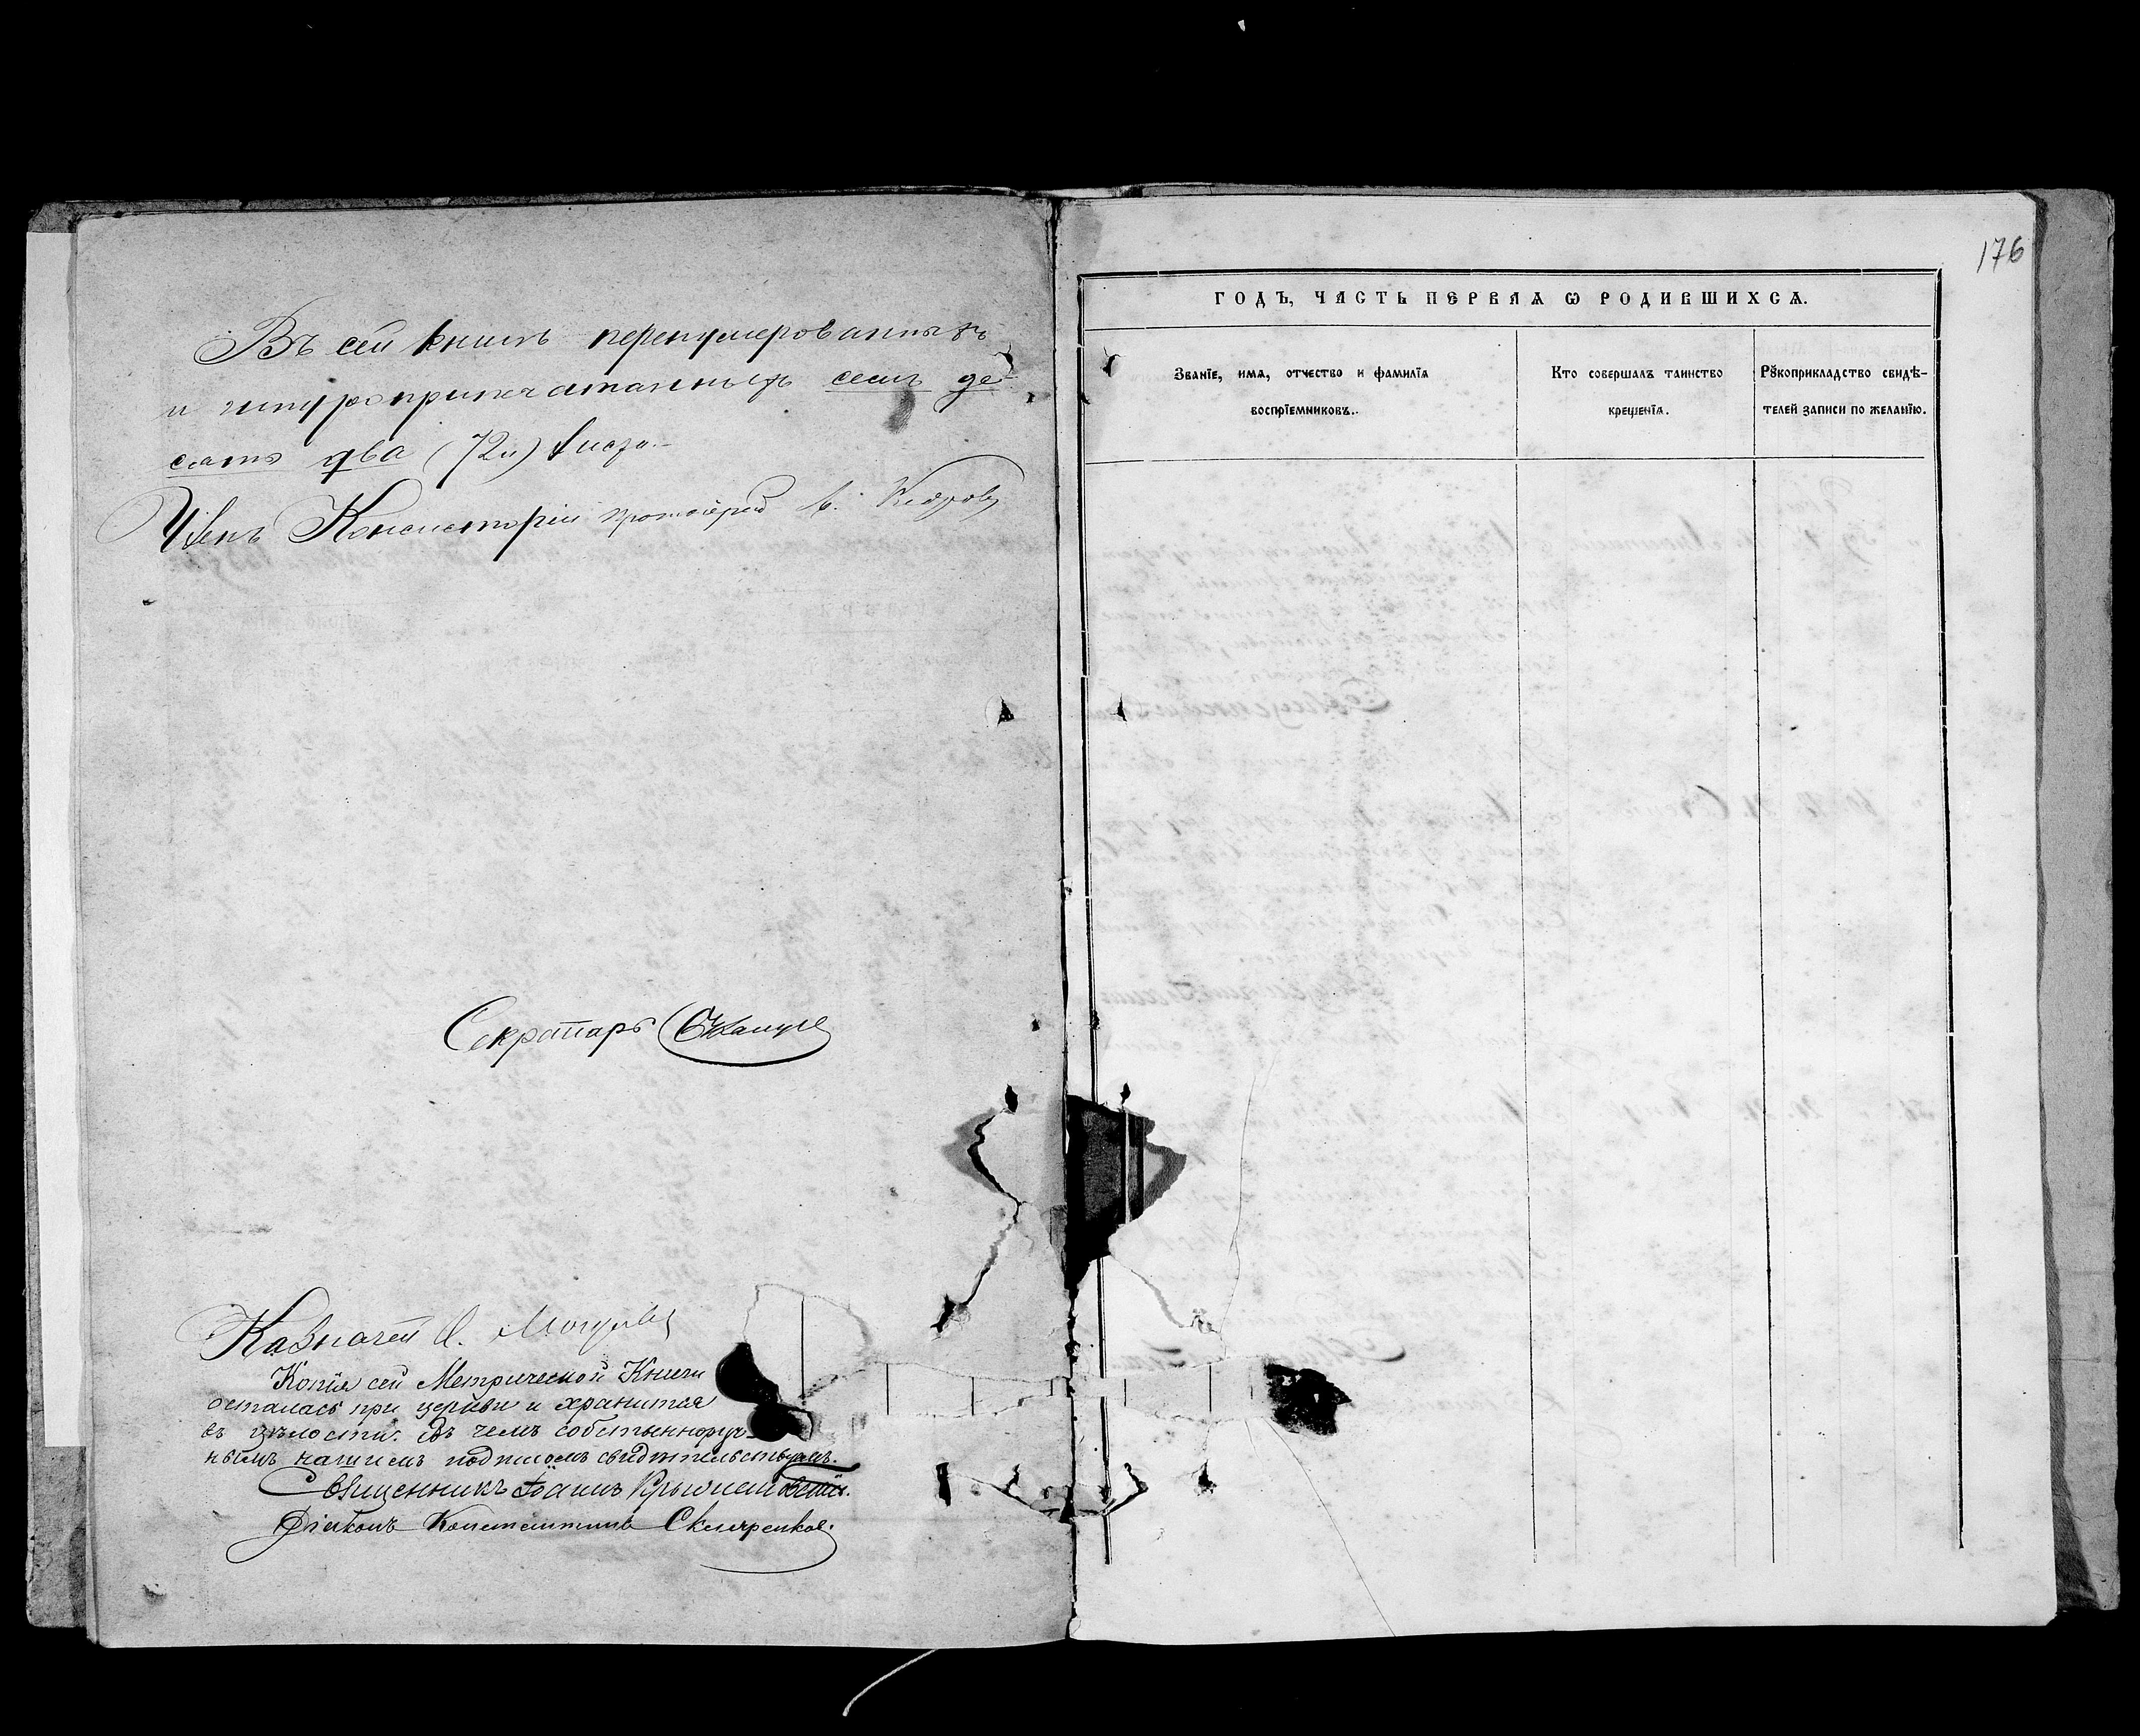 Въ сей книгѣ перенумерованныхъ
и шнуроприпечатанныхъ семь де-
сятъ два (72 и) листа.-
Членъ Консисторіи протоіерей
Секретарь
Казначей
Копія сей Метрической Книги
осталась при церкви и хранится
въ цѣлости. Въ чемъ собственноруч-
нымъ нашимъ подписомъ свидѣтельствуемъ.
Священникъ Іоаннъ
Діаконъ Константинъ
176
ГОДЪ, ЧАСТЬ ПЕРВАЯ Ѡ РОДИВШИХСѦ.
Званїе, имѧ, отчество и фамилїѧ
воспрїемниковъ..
Кто совершалъ таинство
крещенїѧ.
Рꙋкоприкладство свидѣ-
телей записи по желанїю.